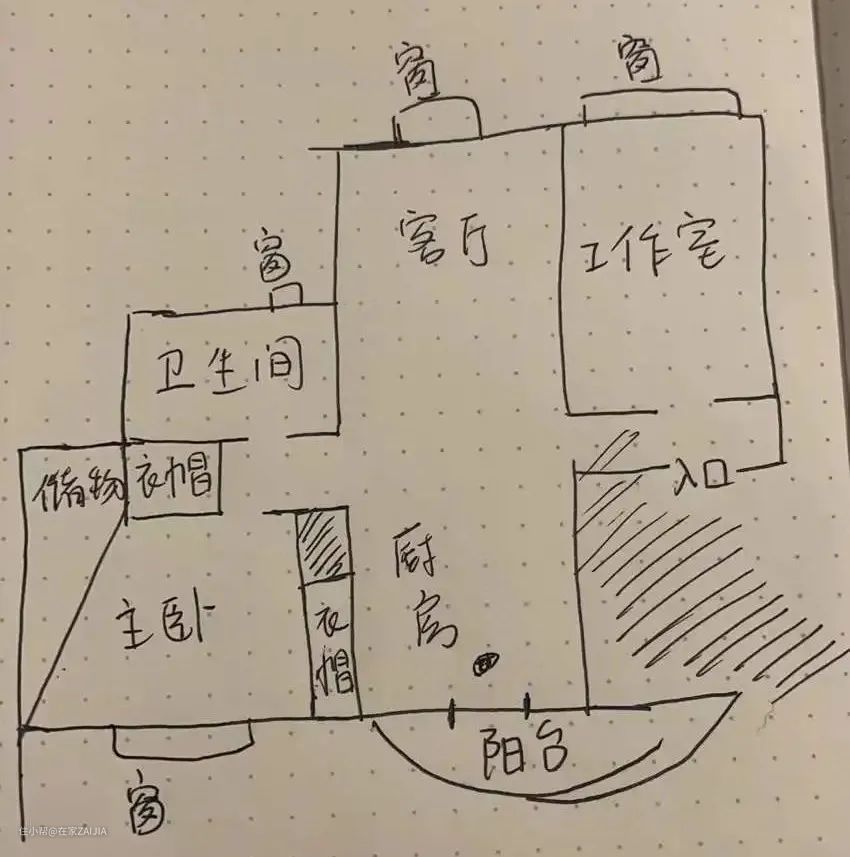 窗
窗
客厅
工作室
窗
卫生间
储物
衣帽
入口
厨
房
主卧
衣
帽
阳台
窗
住小帮@在家ZAIJIA